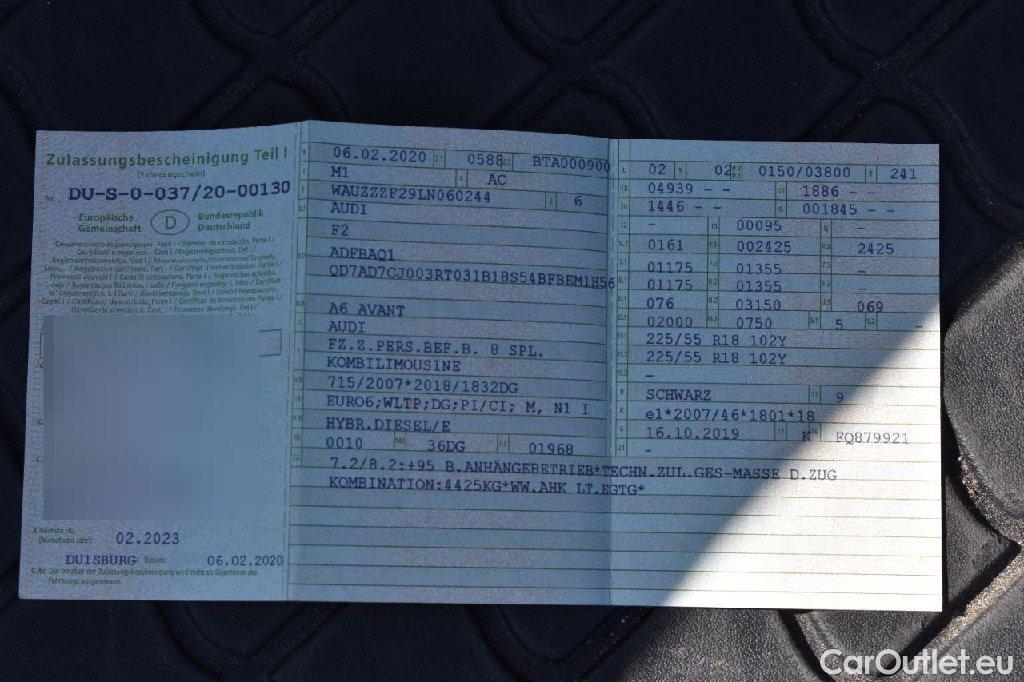 Zulassungsbescheinigung Teil I
(Fahrzeugschein)
Nr. DU-S-0-037/20-00130
Europäische Gemeinschaft
D
Bundesrepublik Deutschland
Nächste HU
(Monat und Jahr)
02.2023
DUISBURG Datum: 06.02.2020
C.4c Der Inhaber der Zulassungsbescheinigung wird nicht als Eigentümer des
Fahrzeugs ausgewiesen.
06.02.2020 0588 BTA000900
M1 AC
WAUZZZF29LN060244 6
AUDI
F2
ADFBAQ1
QD7AD7CJ003RT031B18S54BFBEM1H56
A6 AVANT
AUDI
FZ.Z.PERS.BEF.B. 8 SPL.
KOMBILIMOUSINE
715/2007*2018/1832DG
EURO6;WLTP;DG;PI/CI; M, N1 I
HYBR.DIESEL/E
0010 36DG 01968
7.2/8.2:+95 B.ANHÄNGEBETRIEB*TECHN.ZUL.GES-MASSE D.ZUG
KOMBINATION:4425KG*WW.AHK LT.EGTG*
02 02 0150/03800 241
04939 - - 1886 - -
1446 - - 001845 - -
- 00095 -
0161 002425 2425
01175 01355 -
01175 01355 -
076 03150 069
02000 0750 5 -
225/55 R18 102Y
225/55 R18 102Y
-
SCHWARZ 9
e1*2007/46*1801*18
16.10.2019 K FQ879921
-
CarOutlet.eu